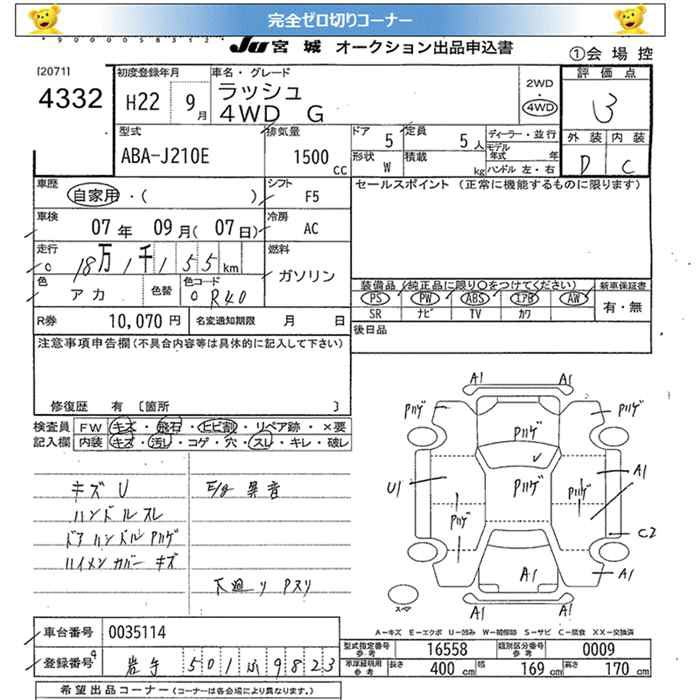 完全ゼロ切りコーナー
Ju 宮城 オークション出品申込書
①会場控
[2071]
4332
初度登録年月
H22 9月
車名・グレード
ラッシュ
4WD G
2WD
・
4WD
評価点
3
外装 内装
D C
型式
ABA-J210E
排気量
1500 cc
ドア 5
定員 5人
形状 W
積載 kg
ディーラー・並行
モデル年式 年
ハンドル 左・右
車歴
自家用・( )
シフト F5
セールスポイント (正常に機能するものに限ります)
車検
07年 09月(07日)
冷房 AC
走行
18万1千155km
燃料
ガソリン
色
アカ
色替
色コード
R40
装備品 (純正品に限り○をつけてください)
PS PW ABS エアB AW
SR ナビ TV カワ
新車保証書
有・無
R券 10,070円
名変通知期限 月 日
後日品
注意事項申告欄(不具合内容等は具体的に記入して下さい)
修復歴 有 〔箇所 〕
検査員 FW キズ・飛石・ヒビ割・リペア跡・×要
記入欄 内装 キズ・汚し・コゲ・穴・スレ・キレ・破レ
キズ U
E/g 異音
ハンドルスレ
ドアハンドル Pハゲ
ハイメンカバー キズ
下廻り Pスリ
A1 A1
Pハゲ Pハゲ
Pハゲ
U1 Pハゲ Pハゲ A1
Pハゲ
C2
A1 A1
A1 A1
スペア
A−キズ E−エクボ U−凹み W−補修跡 S−サビ C−腐食 XX−交換済
車台番号 0035114
登録番号 岩手 501 ふ 9823
型式指定番号 参考 16558
類別区分番号 参考 0009
車庫証明用 参考 長さ 400cm 幅 169cm 高さ 170cm
希望出品コーナー (コーナーは各会場により異なります。)